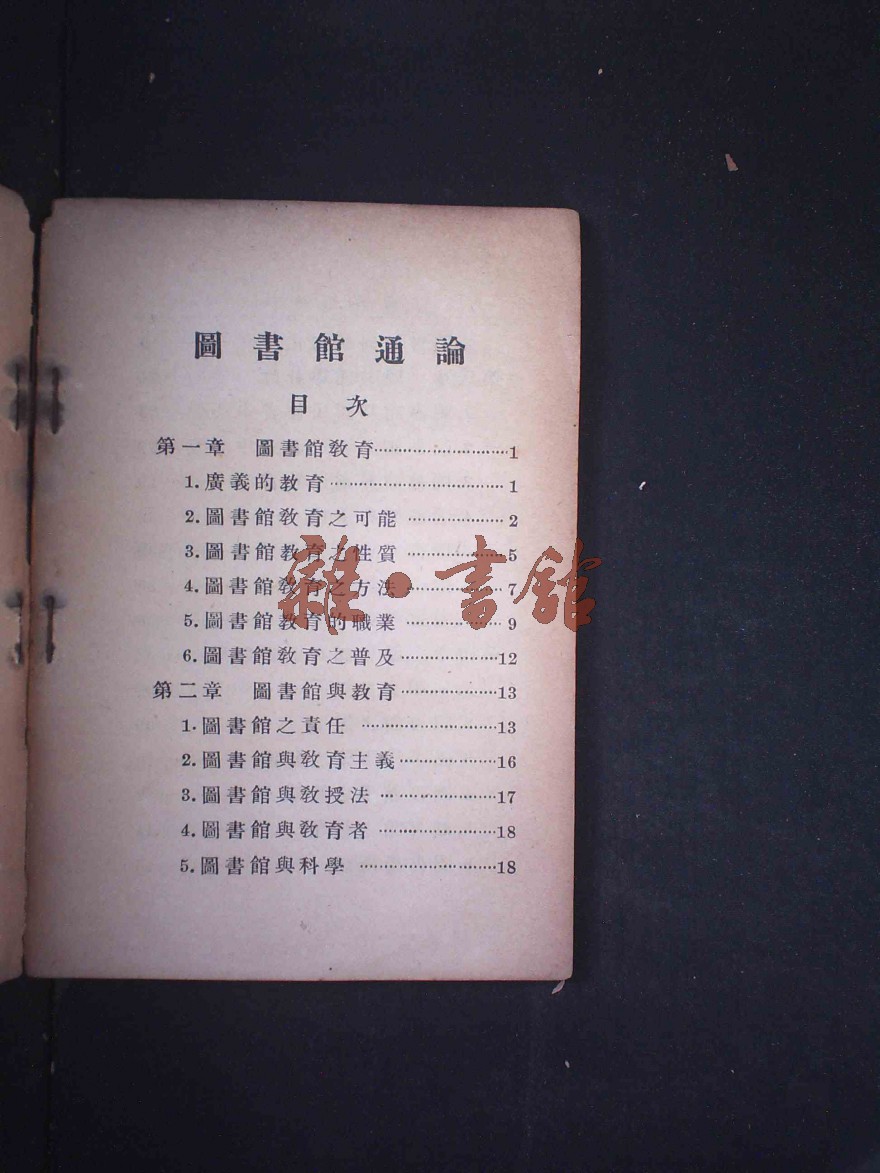 圖書館通論
目次
第一章 圖書館教育…………………………1
1.廣義的教育…………………………………1
2.圖書館教育之可能…………………2
3.圖書館教育之性質…………………5
4.圖書館教育之方法…………………7
5.圖書館教育的職業…………………9
6.圖書館教育之普及…………………12
第二章 圖書館與教育…………………13
1.圖書館之責任…………………………13
2.圖書館與教育主義…………………16
3.圖書館與教授法……………………17
4.圖書館與教育者……………………18
5.圖書館與科學…………………………18
雜·書館